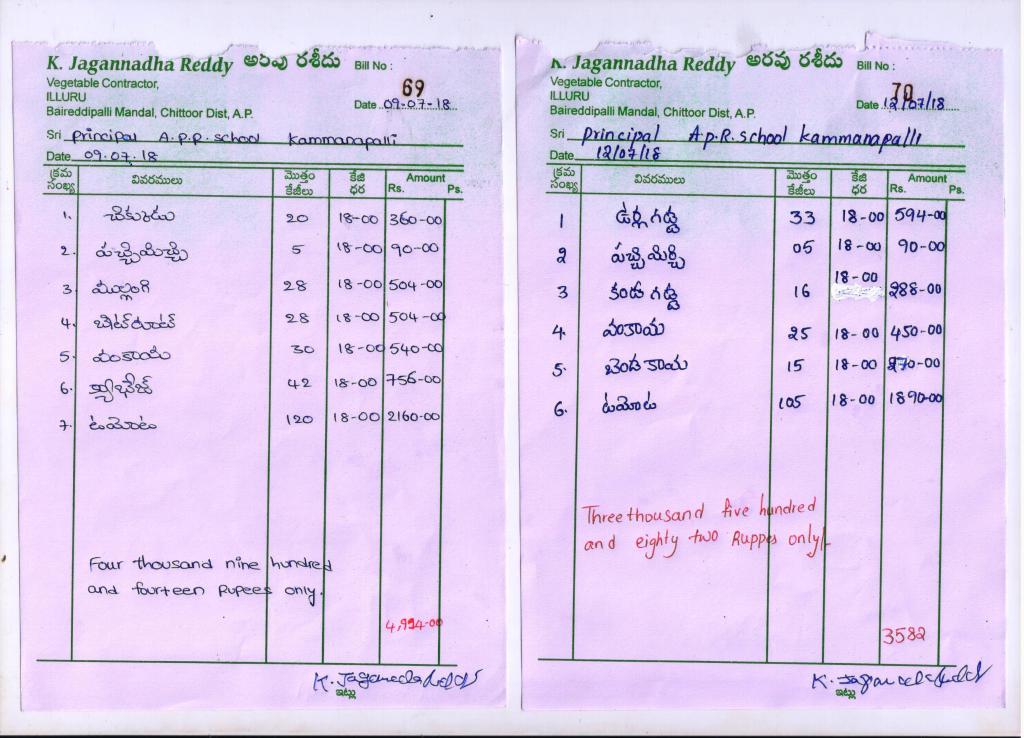 K. Jagannadha Reddy అరువు రశీదు Bill No :
69
Vegetable Contractor,
ILLURU
Baireddipalli Mandal, Chittoor Dist, A.P.
Date 09-07-18
Sri principal A.p.R. school Kammanapalli
Date 09.07.18
క్రమ సంఖ్య వివరములు మొత్తం కేజీలు కేజి ధర Amount Rs. Ps.
1. చికుడు 20 18-00 360-00
2. పచ్చిమిచ్చి 5 18-00 90-00
3. ముల్లంగి 28 18-00 504-00
4. బీట్‌రూట్ 28 18-00 504-00
5. వంకాయ 30 18-00 540-00
6. క్యాబేజ్ 42 18-00 756-00
7. టమోట 120 18-00 2160-00
Four thousand nine hundred
and fourteen Rupees only.
K. Jagannadha Reddy
ఇట్లు
K. Jagannadha Reddy అరువు రశీదు Bill No :
70
Vegetable Contractor,
ILLURU
Baireddipalli Mandal, Chittoor Dist, A.P.
Date 12/07/18
Sri principal A.p.R. school Kammanapalli
Date 12/07/18
క్రమ సంఖ్య వివరములు మొత్తం కేజీలు కేజి ధర Amount Rs. Ps.
1 ఉర్లగడ్డ 33 18-00 594-00
2 పచ్చిమిర్చి 05 18-00 90-00
3 కండగడ్డ 16 18-00 288-00
4. వంకాయ 25 18-00 450-00
5. బెండకాయ 15 18-00 270-00
6. టమోట 105 18-00 1890-00
Three thousand five hundred
and eighty two Ruppes only/-
3582
K. Jagannadha Reddy
ఇట్లు